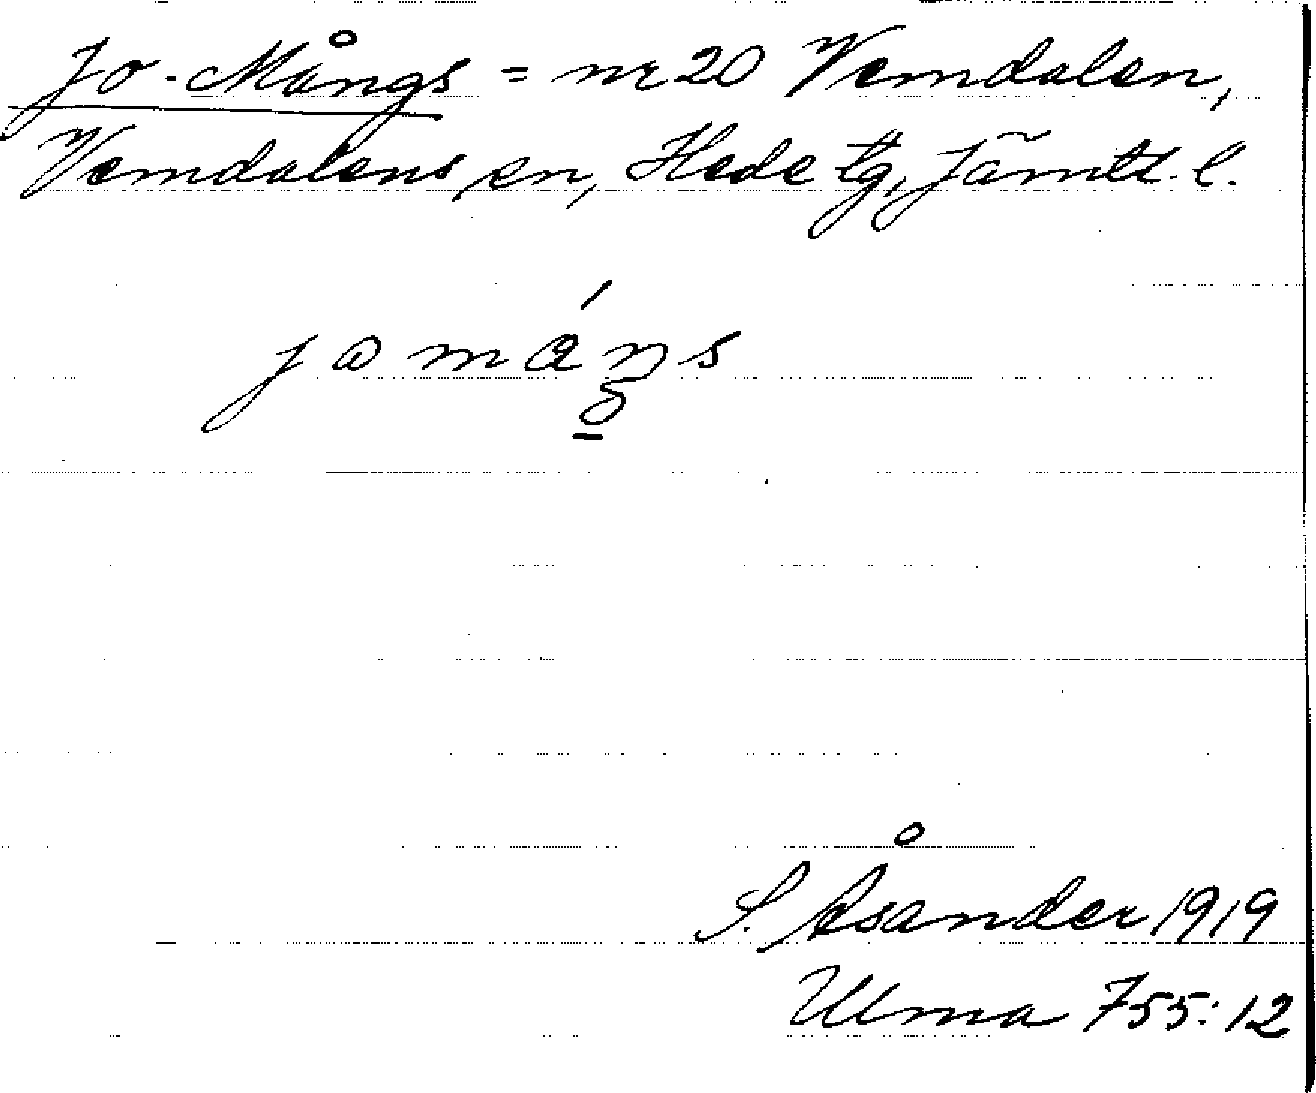 Jo-Mångs = nr 20 Vemdalen,
Vemdalens sn, Hede tg, Jämtl. l.
S. Åsander 1919
Ulma 755:12